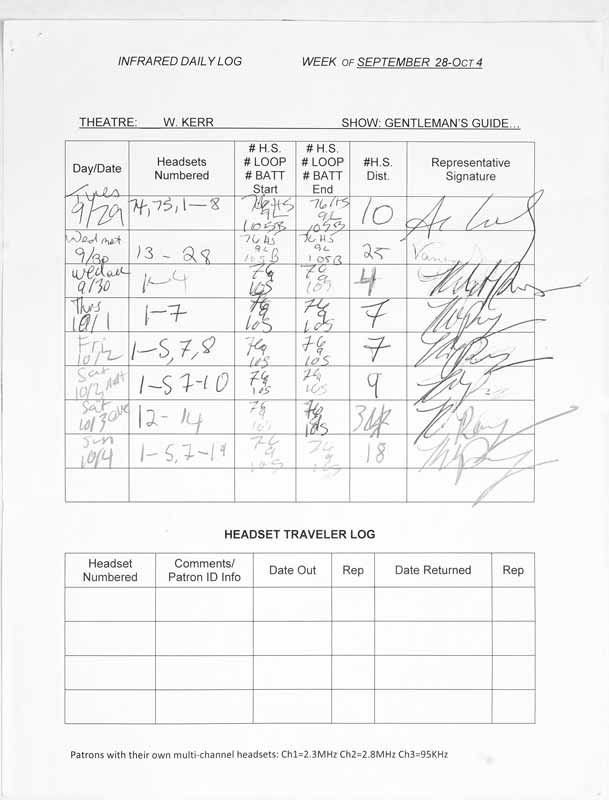 INFRARED DAILY LOG WEEK OF SEPTEMBER 28-OCT 4
THEATRE: W. KERR SHOW: GENTLEMAN'S GUIDE...
Day/Date Headsets Numbered # H.S. # LOOP # BATT Start # H.S. # LOOP # BATT End #H.S. Dist. Representative Signature
Tues 9/29 74, 75, 1-8 76 HS 9L 105B 76 HS 9L 105B 10
Wed mat 9/30 13-28 76 HS 9L 105B 76 HS 9L 105B 25
Wed 9/30 1-4 76 9 105 76 9 105 4
Thrs 10/1 1-7 76 9 105 76 9 105 7
Fri 10/2 1-5,7,8 76 9 105 76 9 105 7
Sat 10/3 mat 1-5 7-10 76 9 105 76 9 105 9
Sat 10/3 eve 12-14 76 9 105 76 9 105 3
Sun 10/4 1-5,7-19 76 9 105 76 9 105 18
HEADSET TRAVELER LOG
Headset Numbered Comments/ Patron ID Info Date Out Rep Date Returned Rep
Patrons with their own multi-channel headsets: Ch1=2.3MHz Ch2=2.8MHz Ch3=95KHz